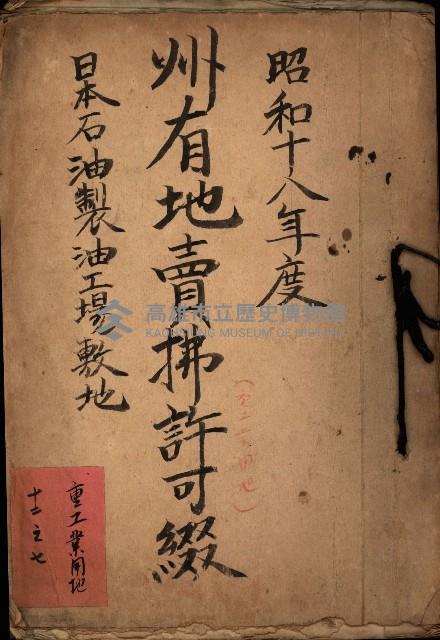 昭和十八年度
州有地賣拂許可綴
日本石油製油工場敷地
重工業用地
十二之七
高雄市立歷史博物館
KAOHSIUNG MUSEUM OF HISTORY